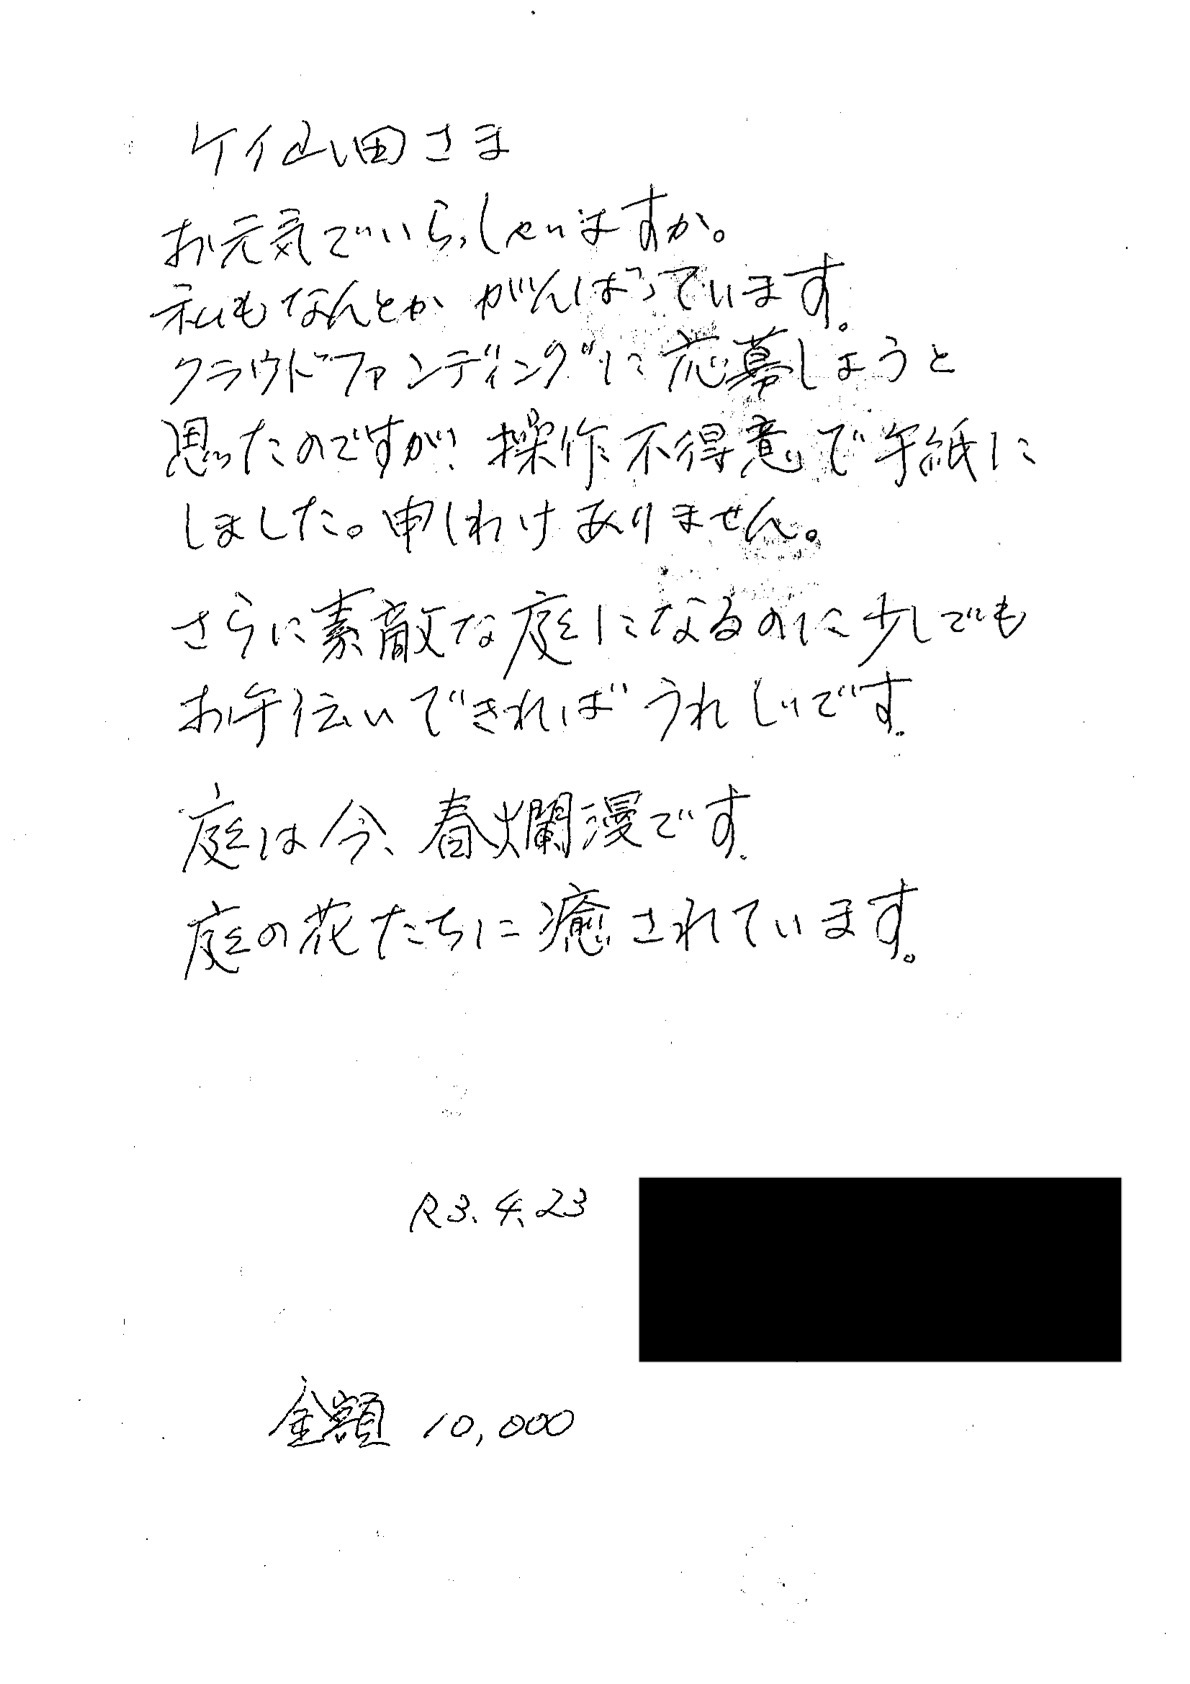 ケイ山田さま
お元気でいらっしゃいますか。
私もなんとかがんばっています。
クラウドファンディングに応募しようと
思ったのですが、操作不得意で手紙に
しました。申しわけありません。
さらに素敵な庭になるのに少しでも
お手伝いできればうれしいです。
庭は今、春爛漫です。
庭の花たちに癒されています。
R3.4.23
金額 10,000